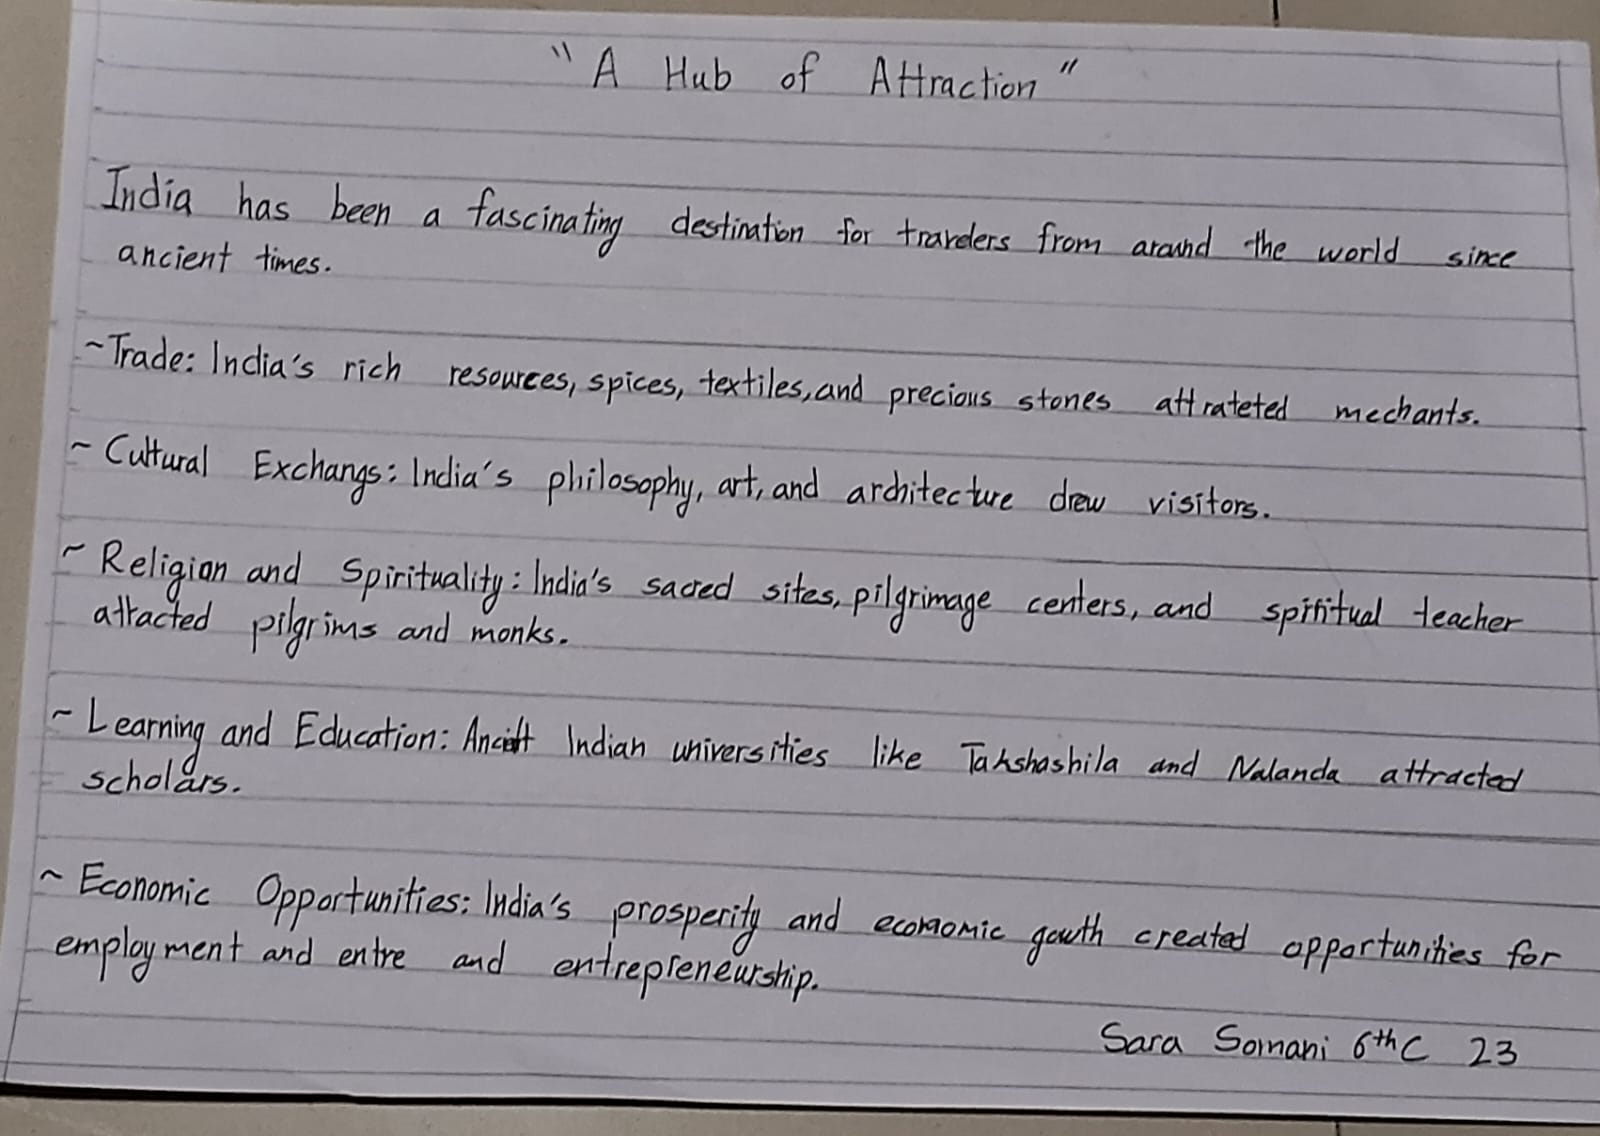 "A Hub of Attraction"
India has been a fascinating destination for travelers from around the world since
ancient times.
~Trade: India's rich resources, spices, textiles, and precious stones attrateted mechants.
~ Cultural Exchangs: India's philosophy, art, and architecture drew visitors.
~ Religion and Spirituality: India's sacred sites, pilgrimage centers, and spiritual teacher
attracted pilgrims and monks.
~ Learning and Education: Ancient Indian universities like Takshashila and Nalanda attracted
scholars.
~ Economic Opportunities: India's prosperity and economic gowth created opportunities for
employment and entre and entrepreneurship.
Sara Somani 6th C 23